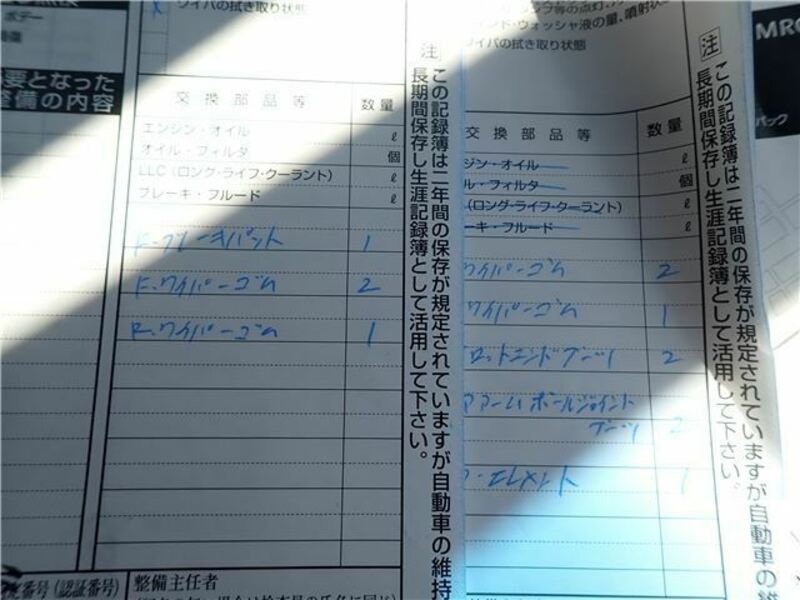 ボデー
要となった
整備の内容
ワイパの拭き取り状態
交換部品等 数量
エンジン・オイル ℓ
オイル・フィルタ 個
LLC(ロング・ライフ・クーラント) ℓ
ブレーキ・フルード ℓ
F.ブレーキパット 1
F.ワイパーゴム 2
R.ワイパーゴム 1
番号(認証番号)
整備主任者
注
この記録簿は二年間の保存が規定されていますが自動車の維持
長期間保存し生涯記録簿として活用して下さい。
ウォッシャ液の量、噴射状
ワイパの拭き取り状態
交換部品等 数量
ジン・オイル ℓ
ル・フィルタ 個
(ロング・ライフ・クーラント) ℓ
ーキ・フルード ℓ
ワイパーゴム 2
ワイパーゴム 1
ロットエンドブーツ 2
アアームボールジョイント
ブーツ 2
・エレメント 1
注
この記録簿は二年間の保存が規定されていますが自動車の維
長期間保存し生涯記録簿として活用して下さい。
MRO
パック